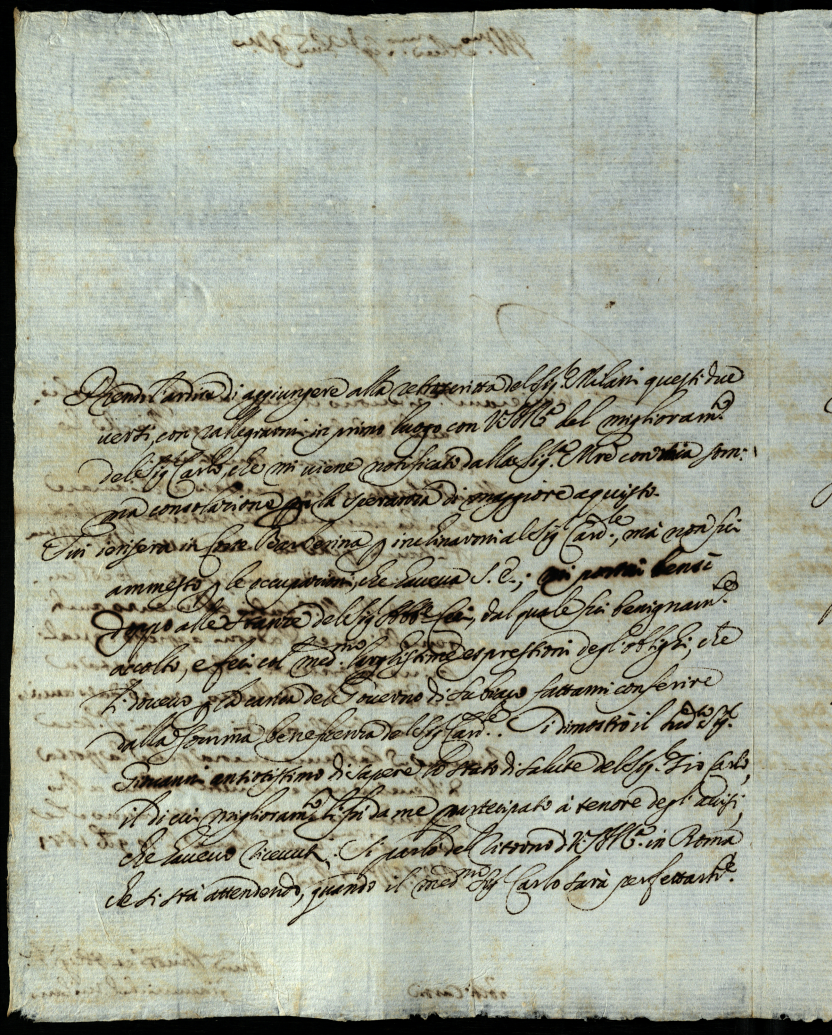 Prendo l'ardire di aggiungere alla retroscritta del Sig.r Milani questi due
versi, con rallegrarmi in primo luogo con V.S. Ill.ma del miglioram.to
del Sig.r Carlo, che mi viene notificato dalla Sig.ra M.re con mia som:
ma consolazione, p la speranza di maggiore aquisto.
Fui iersera in Corte Barberina p inclinarmi al Sig.r Card.le, mà non fui
ammesso p le occupazioni, che haveva S. E.; mi portai bensi
doppo alle stanze del Sig.r Abb.e, dal quale fui benignam.te
accolto, e feci col med.mo larghissime espressioni degl'oblighi, che
li dovevo p la carica del Governo di Subiaco fattami conferire
dalla somma beneficenza del Sig.r Card.le. Si dimostrò il sud.to Sig.r
antiosissimo di sapere lo stato di salute del Sig.r Zio Carlo,
il di cui miglioram.to li fù da me partecipato à tenore degl'avvisi,
che havevo ricevuti. Si parlò del ritorno di V.S. Ill.ma in Roma
che si stà attendendo, quando il med.mo Sig.r Carlo sarà perfettam.te